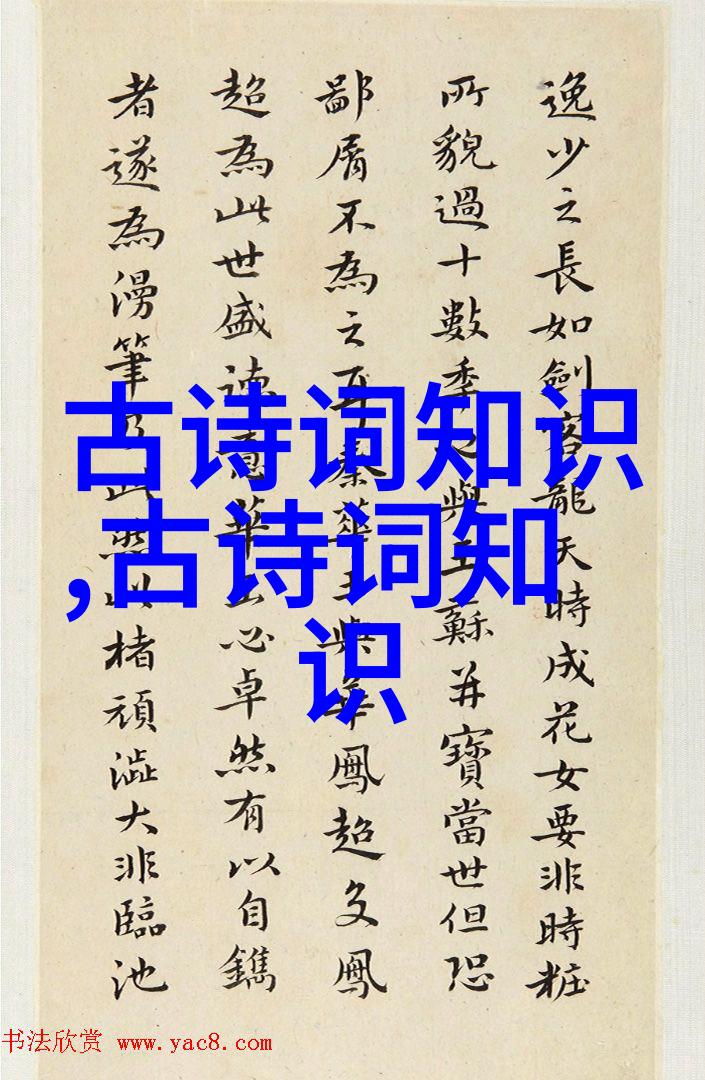 逸少之長如劍天時成花女要非時粧
所貌過十數季與蘇并寶當世但恐
鄙屑不為之耳秦與華鳳超文鳳
超為此世盛德意華心卓然有以自鐫
者遂為漫筆此以楮頑澁大非臨池
古诗词知识
,古诗词知
识
书法欣赏 www.yac8.com